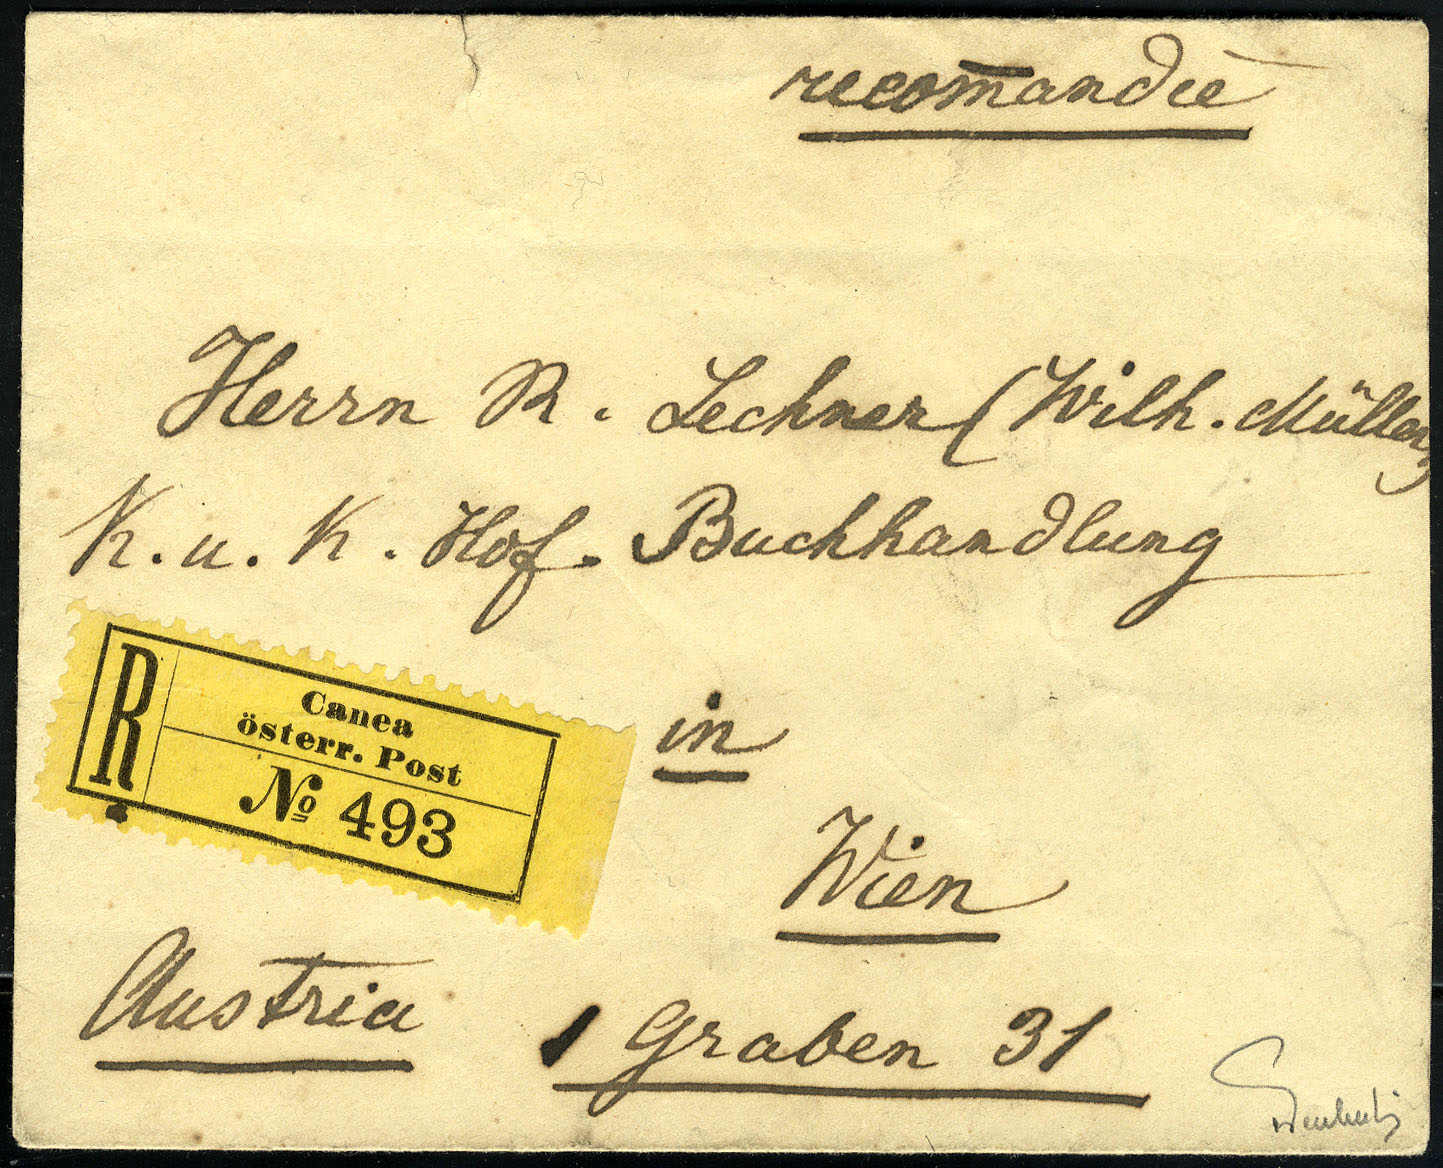 recom̄andée
Herrn R. Lechner (Wilh. Müller)
K. u. K. Hof. Buchhandlung
R
Canea
österr. Post
No 493
in
Wien
Austria
1 Graben 31